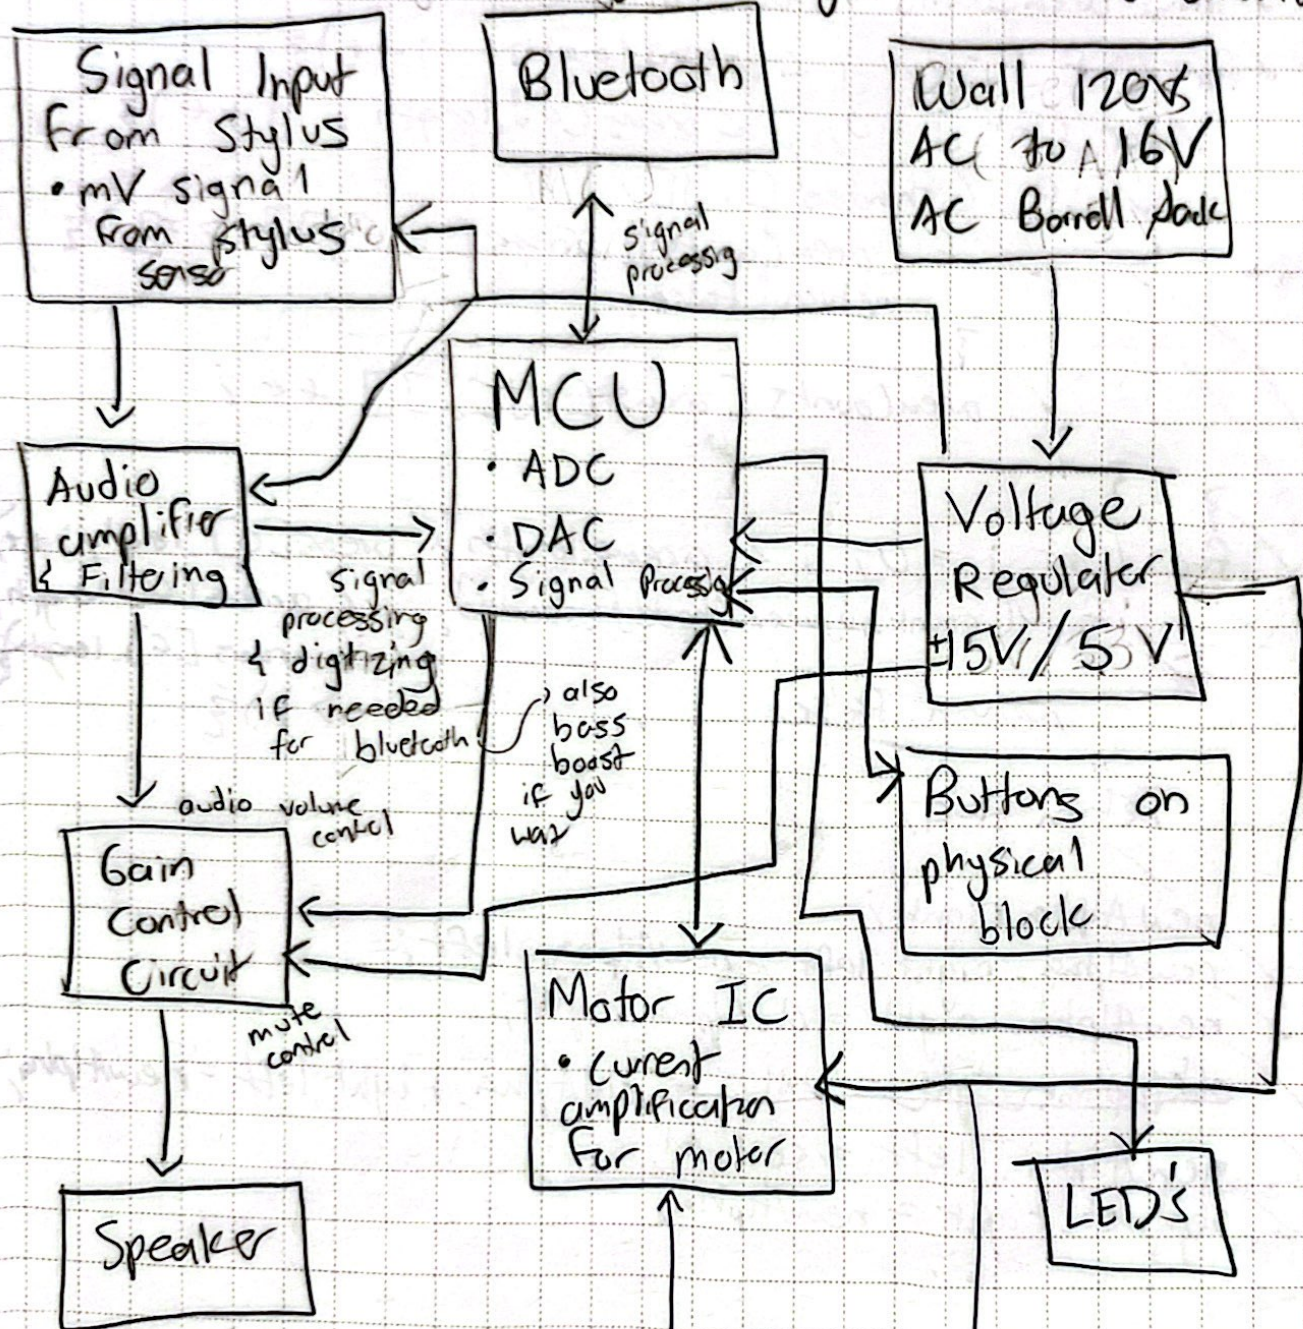 Signal Input
From Stylus
• mV signal
from stylus
Bluetooth
Wall 120V
AC to 16V
AC Barrell Jack
signal
processig
MCU
• ADC
• DAC
• Signal Processig
Audio
amplifier
& Filtering
signal
processing
& digitizing
if needed
for bluetooth
also
bass
boost
if you
Voltage
Regulator
±15V/5V
Buttons on
physical
block
audio volume
control
Gain
Control
Circuit
mute
control
Motor IC
• current
amplification
for motor
Speaker
LED's